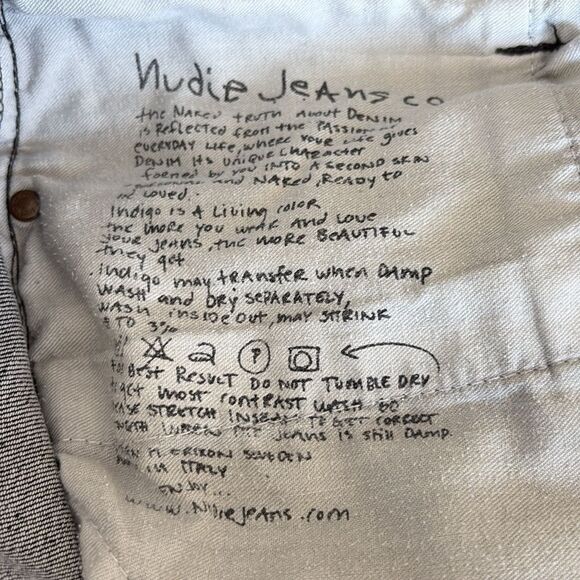 Nudie Jeans co
the Naked truth about Denim
is reflected from the passion
everyday life, where your life gives
Denim its unique character
formed by you into a second skin
and naked, ready to
loved.
Indigo is a living color
the more you wear and love
your jeans, the more beautiful
they get
Indigo may transfer when damp
wash and dry separately,
wash inside out, may shrink
to 3%
P
best result do not tumble dry
most contrast wash 60
stretch inseam to get correct
when the jeans is still damp.
Sweden
Italy
enjoy...
www.nudiejeans.com